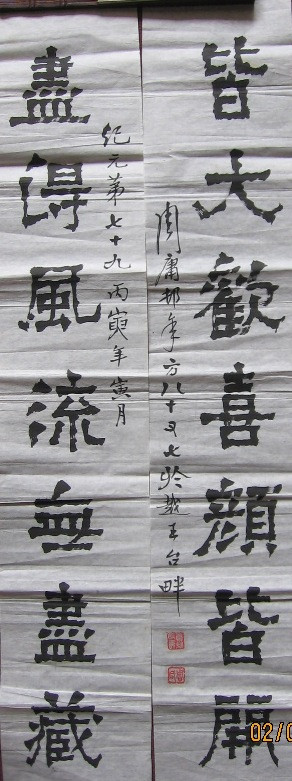 皆大歡喜顏皆開
周庸邨年方八十又七於越王台畔
紀元第七十九丙寅年寅月
盡得風流無盡藏
02/0